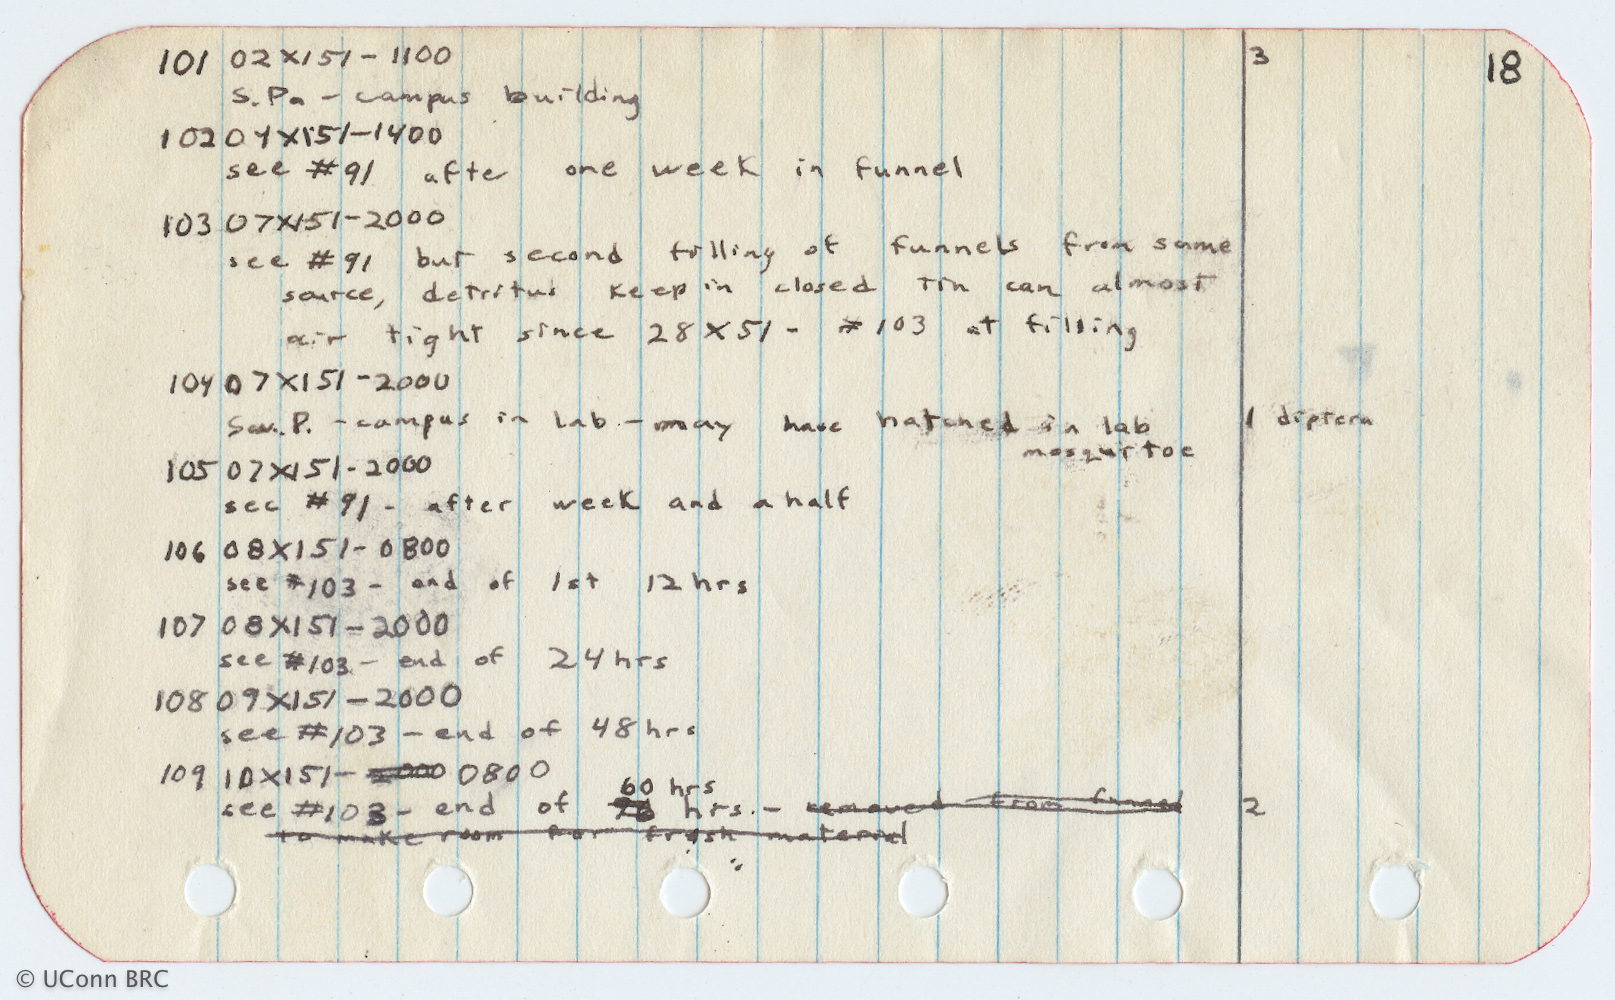 18
101 02X151-1100 3
S.Pa - campus building
102 04X151-1400
see #91 after one week in funnel
103 07X151-2000
see #91 but second filling of funnels from same
source, detritus keep in closed tin can almost
air tight since 28X51- #103 at filling
104 07X151-2000
Sw.P. - campus in lab - may have hatched in lab 1 diptera
mosquitoe
105 07X151-2000
see #91 - after week and a half
106 08X151-0800
see #103 - end of 1st 12 hrs
107 08X151-2000
see #103 - end of 24 hrs
108 09X151-2000
see #103 - end of 48 hrs
109 10X151- 2000 0800
60 hrs
see #103 - end of hrs. - removed from funnel 2
to make room for fresh material
© UConn BRC